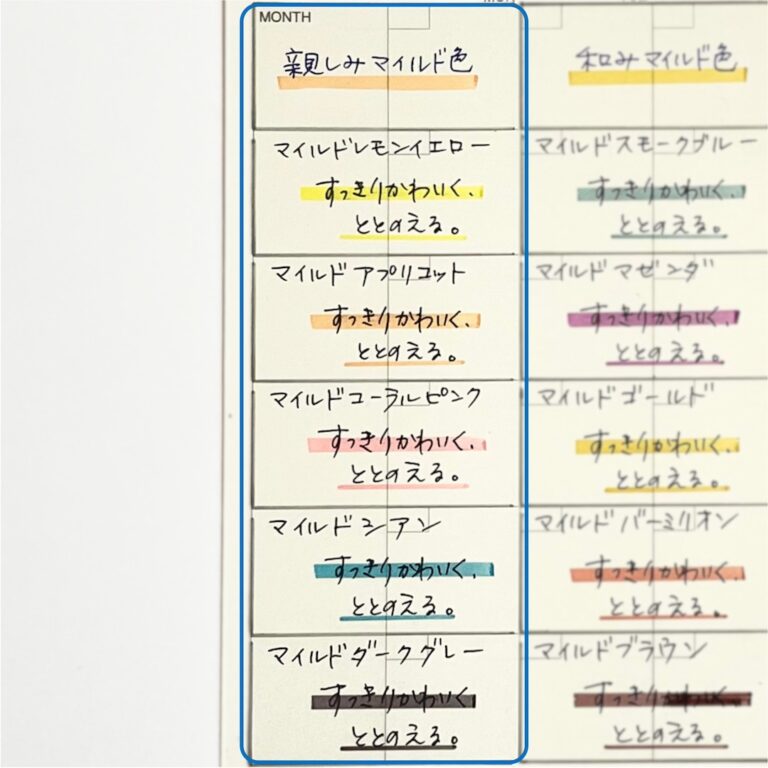 MONTH
親しみマイルド色
マイルドレモンイエロー
すっきりかわいく、
ととのえる。
マイルドアプリコット
すっきりかわいく、
ととのえる。
マイルドコーラルピンク
すっきりかわいく、
ととのえる。
マイルドシアン
すっきりかわいく、
ととのえる。
マイルドダークグレー
すっきりかわいく
ととのえる。
和みマイルド色
マイルドスモークブルー
すっきりかわいく、
ととのえる。
マイルドマゼンダ
すっきりかわいく、
ととのえる。
マイルドゴールド
すっきりかわいく、
ととのえる。
マイルドバーミリオン
すっきりかわいく、
ととのえる。
マイルドブラウン
すっきりかわいく、
ととのえる。